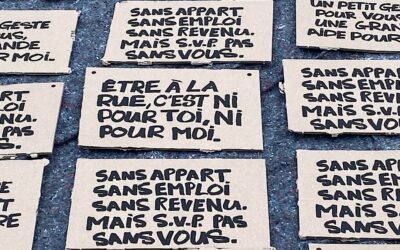 GESTE
US,
ANDE
R MOI.
SANS APPART
SANS EMPLOI
SANS REVENU.
MAIS S.V.P. PAS
SANS VOUS.
UN PETIT GE
POUR VOU
UNE GRAN
AIDE POUR
PPART
PLOI
ENU.
.P. PAS
S.
ÊTRE À LA
RUE, C'EST NI
POUR TOI, NI
POUR MOI.
SANS APPART
SANS EMPLO
SANS REVEN
MAIS S.V.P.
SANS VOU
ST
RE
SANS APPART
SANS EMPLOI
SANS REVENU.
MAIS S.V.P. PAS
SANS VOUS.
SANS APPAR
SANS EMPLO
SANS REVEN
MAIS S.V.P.
SANS VOUS